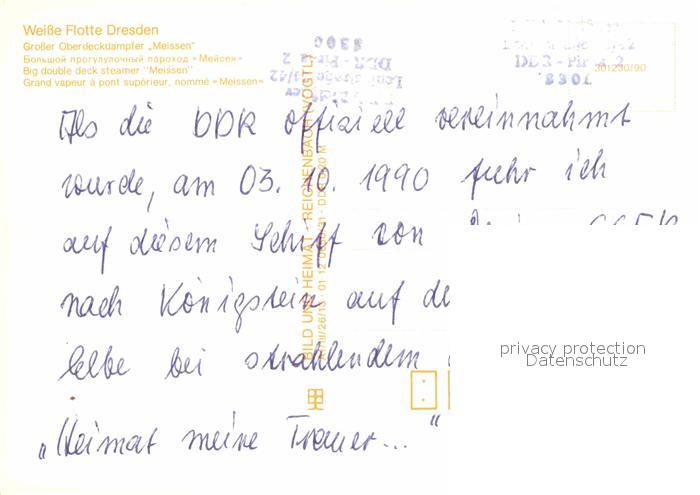 Weiße Flotte Dresden
Großer Oberdeckdampfer „Meissen"
Большой прогулулочный пароход «Мейсен»
Big double deck steamer "Meissen"
Grand vapeur à pont supérieur, nommé «Meissen»
8300
DDR - Pir
DDR - Pir
7088
301230/90
BILD UND HEIMAT · REICHENBACH (VOGTL)
Als die DDR offiziell vereinnahmt
wurde, am 03. 10. 1990 fuhr ich
auf diesem Schiff von
nach Königstein auf de
Elbe bei strahlendem
„Heimat meine Trauer..."
privacy protection
Datenschutz